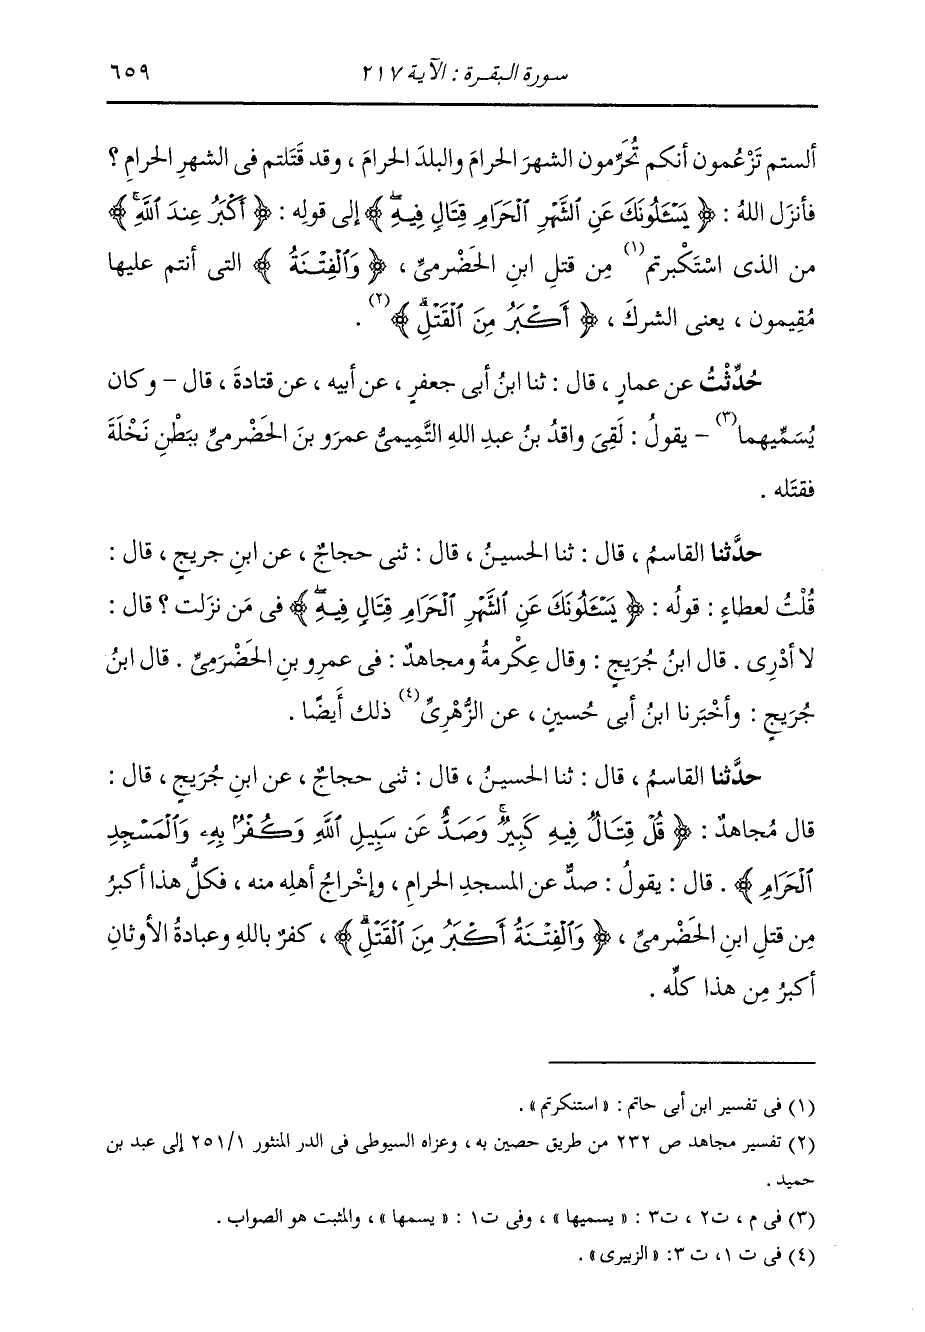 سورة البقرة : الآية ٢١٧ ٦٥٩
ألستم تَزْعُمون أنكم تُحَرِّمون الشهرَ الحرامَ والبلدَ الحرامَ ، وقد قَتَلتم فى الشهرِ الحرامِ ؟
فأنزَل اللهُ : ﴿ يَسْـَٔلُونَكَ عَنِ ٱلشَّهْرِ ٱلْحَرَامِ قِتَالٍ فِيهِۖ ﴾ إلى قولِه : ﴿ أَكْبَرُ عِندَ ٱللَّهِۚ ﴾
من الذى اسْتَكْبرتم(١) مِن قتلِ ابنِ الحَضْرميِّ ، ﴿ وَٱلْفِتْنَةُ ﴾ التى أنتم عليها
مُقِيمون ، يعنى الشركَ ، ﴿ أَكْبَرُ مِنَ ٱلْقَتْلِۗ ﴾(٢) .
حُدِّثْتُ عن عمارٍ ، قال : ثنا ابنُ أبى جعفرٍ ، عن أبيه ، عن قتادةَ ، قال – وكان
يُسَمِّيهما(٣) – يقولُ : لَقِىَ واقدُ بنُ عبدِ اللهِ التَّمِيمىُّ عمرَو بنَ الحَضْرمىِّ ببَطْنِ نَخْلَةَ
فقتَله .
حدَّثنا القاسمُ ، قال : ثنا الحسينُ ، قال : ثنى حجاجٌ ، عن ابنِ جريجٍ ، قال :
قُلْتُ لعطاءٍ : قولُه : ﴿ يَسْـَٔلُونَكَ عَنِ ٱلشَّهْرِ ٱلْحَرَامِ قِتَالٍ فِيهِۖ ﴾ فى مَن نزَلت ؟ قال :
لا أدْرِى . قال ابنُ جُرَيجٍ : وقال عِكْرمةُ ومجاهدٌ : فى عمرِو بنِ الحَضْرَمِىِّ . قال ابنُ
جُرَيجٍ : وأخْبَرنا ابنُ أبى حُسينٍ ، عن الزُّهْرِىِّ(٤) ذلك أَيضًا .
حدَّثنا القاسمُ ، قال : ثنا الحسينُ ، قال : ثنى حجاجٌ ، عن ابنِ جُرَيجٍ ، قال :
قال مُجاهدٌ : ﴿ قُلْ قِتَالٌ فِيهِ كَبِيرٌۚ وَصَدٌّ عَن سَبِيلِ ٱللَّهِ وَكُفْرٌۢ بِهِۦ وَٱلْمَسْجِدِ
ٱلْحَرَامِ ﴾ . قال : يقولُ : صدٌّ عن المسجدِ الحرامِ ، وإخْراجُ أهلِه منه ، فكلُّ هذا أكبرُ
مِن قتلِ ابنِ الحَضْرمىِّ ، ﴿ وَٱلْفِتْنَةُ أَكْبَرُ مِنَ ٱلْقَتْلِۗ ﴾ ، كفرٌ باللهِ وعبادةُ الأوثانِ
أكبرُ مِن هذا كلِّه .
(١) فى تفسير ابن أبى حاتم : « استنكرتم » .
(٢) تفسير مجاهد ص ٢٣٢ من طريق حصين به ، وعزاه السيوطى فى الدر المنثور ٢٥١/١ إلى عبد بن
حميد .
(٣) فى م ، ت٢ ، ت٣ : « يسميها » ، وفى ت١ : « يسمها » ، والمثبت هو الصواب .
(٤) فى ت ١، ت ٣: « الزبيرى » .